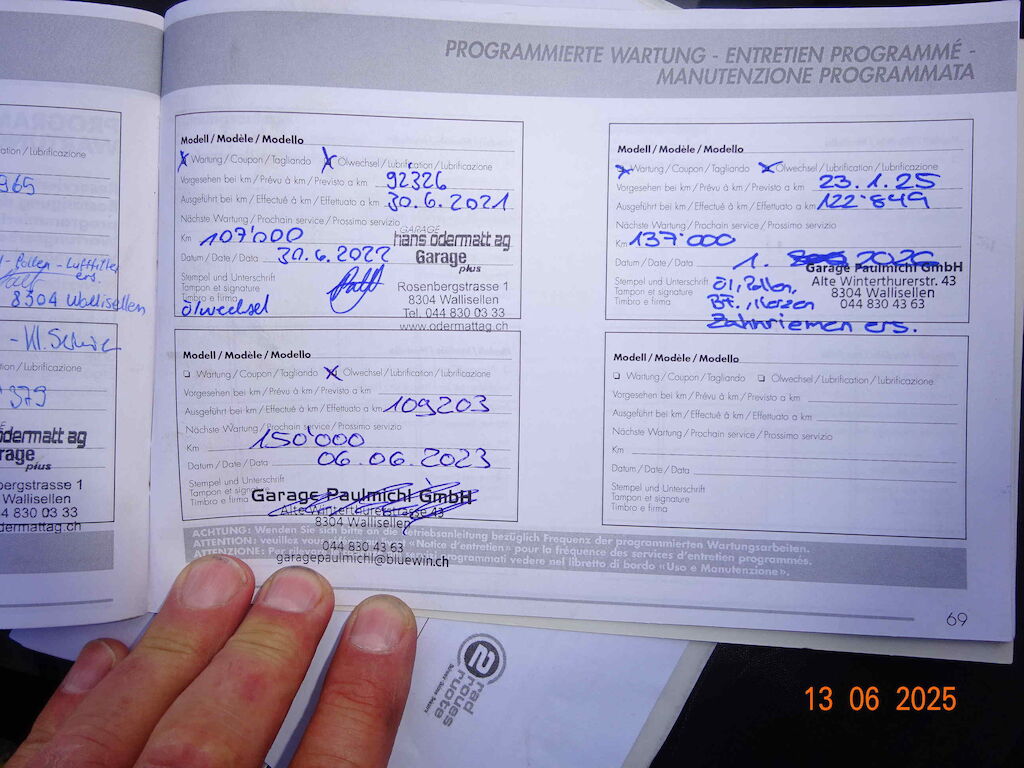 PROGRAMMIERTE WARTUNG - ENTRETIEN PROGRAMMÉ -
MANUTENZIONE PROGRAMMATA
ation / Lubrificazione
365
- Pollen - Luftfilter
ers.
8304 Wallisellen
ation / Lubrificazione
379
ödermatt ag
rage
plus
bergstrasse 1
Wallisellen
830 03 33
odermattag.ch
Modell / Modèle / Modello
X Wartung / Coupon / Tagliando X Ölwechsel / Lubrification / Lubrificazione
Vorgesehen bei km / Prévu à km / Previsto a km 92326
Ausgeführt bei km / Effectué à km / Effettuato a km 30.6.2021
Nächste Wartung / Prochain service / Prossimo servizio
Km 107'000
Datum / Date / Data 30.6.2022
Stempel und Unterschrift
Tampon et signature
Timbro e firma
Ölwechsel
GARAGE
hans ödermatt ag
Garage
plus
Rosenbergstrasse 1
8304 Wallisellen
Tel. 044 830 03 33
www.odermattag.ch
Modell / Modèle / Modello
Wartung / Coupon / Tagliando X Ölwechsel / Lubrification / Lubrificazione
Vorgesehen bei km / Prévu à km / Previsto a km
Ausgeführt bei km / Effectué à km / Effettuato a km 109203
Nächste Wartung / Prochain service / Prossimo servizio
Km 150'000
Datum / Date / Data 06.06.2023
Stempel und Unterschrift
Tampon et signature
Timbro e firma
Garage Paulmichl GmbH
Alte Winterthurerstrasse 43
8304 Wallisellen
044 830 43 63
garagepaulmichl@bluewin.ch
Modell / Modèle / Modello
X Wartung / Coupon / Tagliando X Ölwechsel / Lubrification / Lubrificazione
Vorgesehen bei km / Prévu à km / Previsto a km 23.1.25
Ausgeführt bei km / Effectué à km / Effettuato a km 122'849
Nächste Wartung / Prochain service / Prossimo servizio
Km 137'000
Datum / Date / Data 1. 2026
Stempel und Unterschrift
Tampon et signature
Timbro e firma
Garage Paulmichl GmbH
Alte Winterthurerstr. 43
8304 Wallisellen
044 830 43 63
Öl, Pollen,
BF., Kerzen
Zahnriemen ers.
Modell / Modèle / Modello
Wartung / Coupon / Tagliando Ölwechsel / Lubrification / Lubrificazione
Vorgesehen bei km / Prévu à km / Previsto a km
Ausgeführt bei km / Effectué à km / Effettuato a km
Nächste Wartung / Prochain service / Prossimo servizio
Km
Datum / Date / Data
Stempel und Unterschrift
Tampon et signature
Timbro e firma
ACHTUNG: Wenden Sie sich bitte an die Betriebsanleitung bezüglich Frequenz der programmierten Wartungsarbeiten.
ATTENTION: veuillez vous «Notice d'entretien» pour la fréquence des services d'entretien programmés.
ATTENZIONE: Per programmati vedere nel libretto di bordo «Uso e Manutenzione».
69
2
rad
roues
ruote
13 06 2025